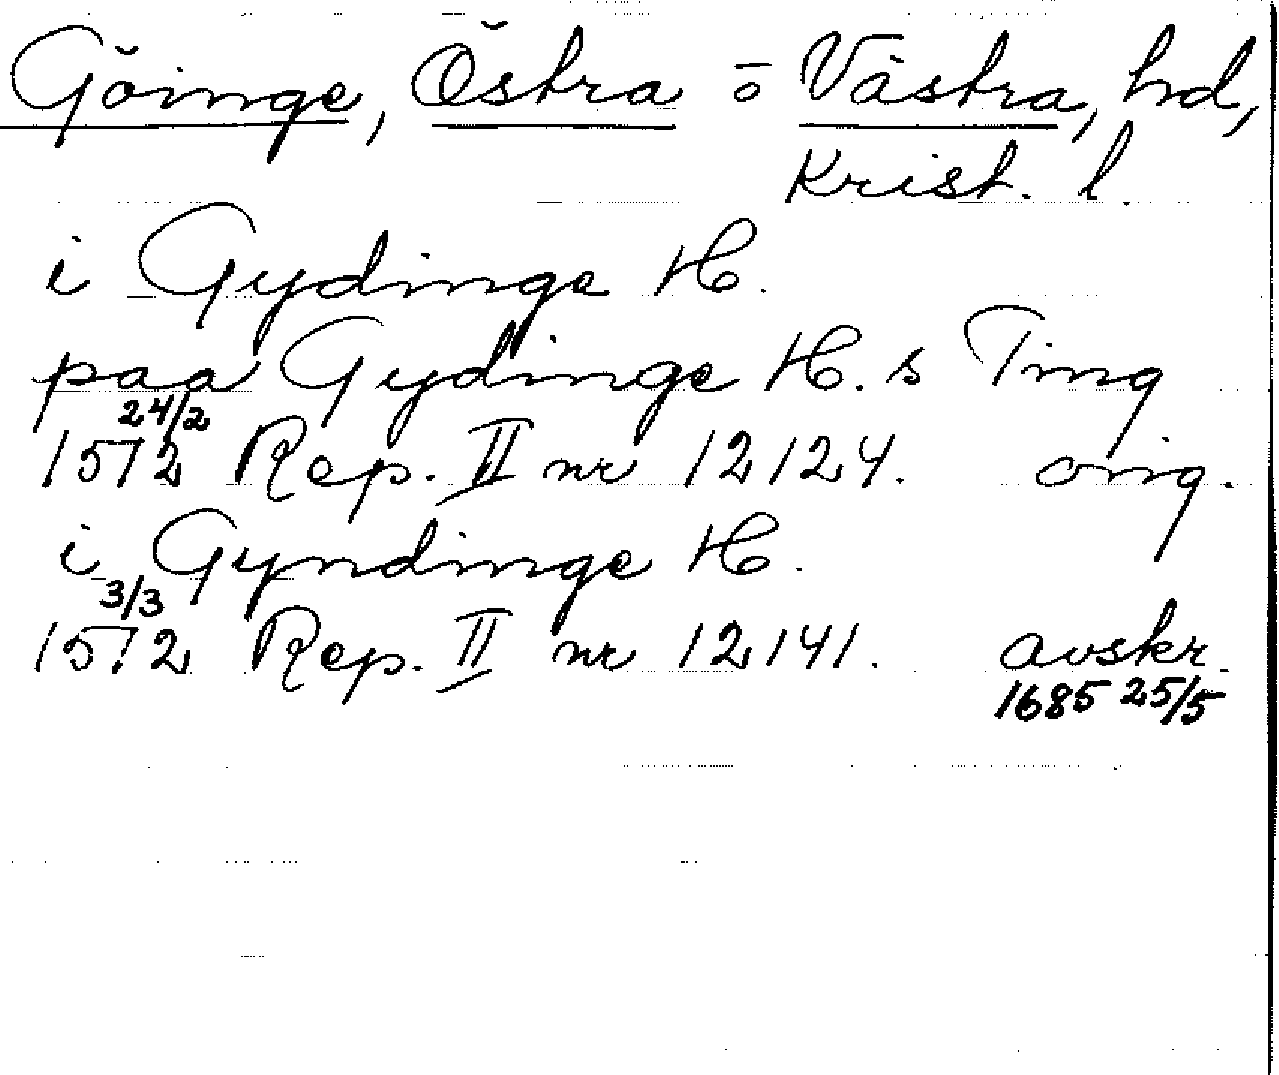 Göinge, Östra ō Västra, hd,
Krist. l.
i Gydinge H.
paa Gydinge H. s Ting
24/2
1572 Rep. II nr 12124. orig.
i Gyndinge H.
3/3
1572 Rep. II nr 12141. avskr.
1685 25/5